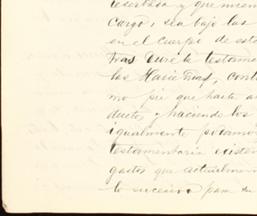 y que mien
cargo, sea bajo las
en el cuerpo de este
tras dure la testamen
las Haciendas, cont
mo pie que hasta a
ductos, y haciendo los
igualmente
testamentaria existen
gastos que actualmen
lo sucesivo para su